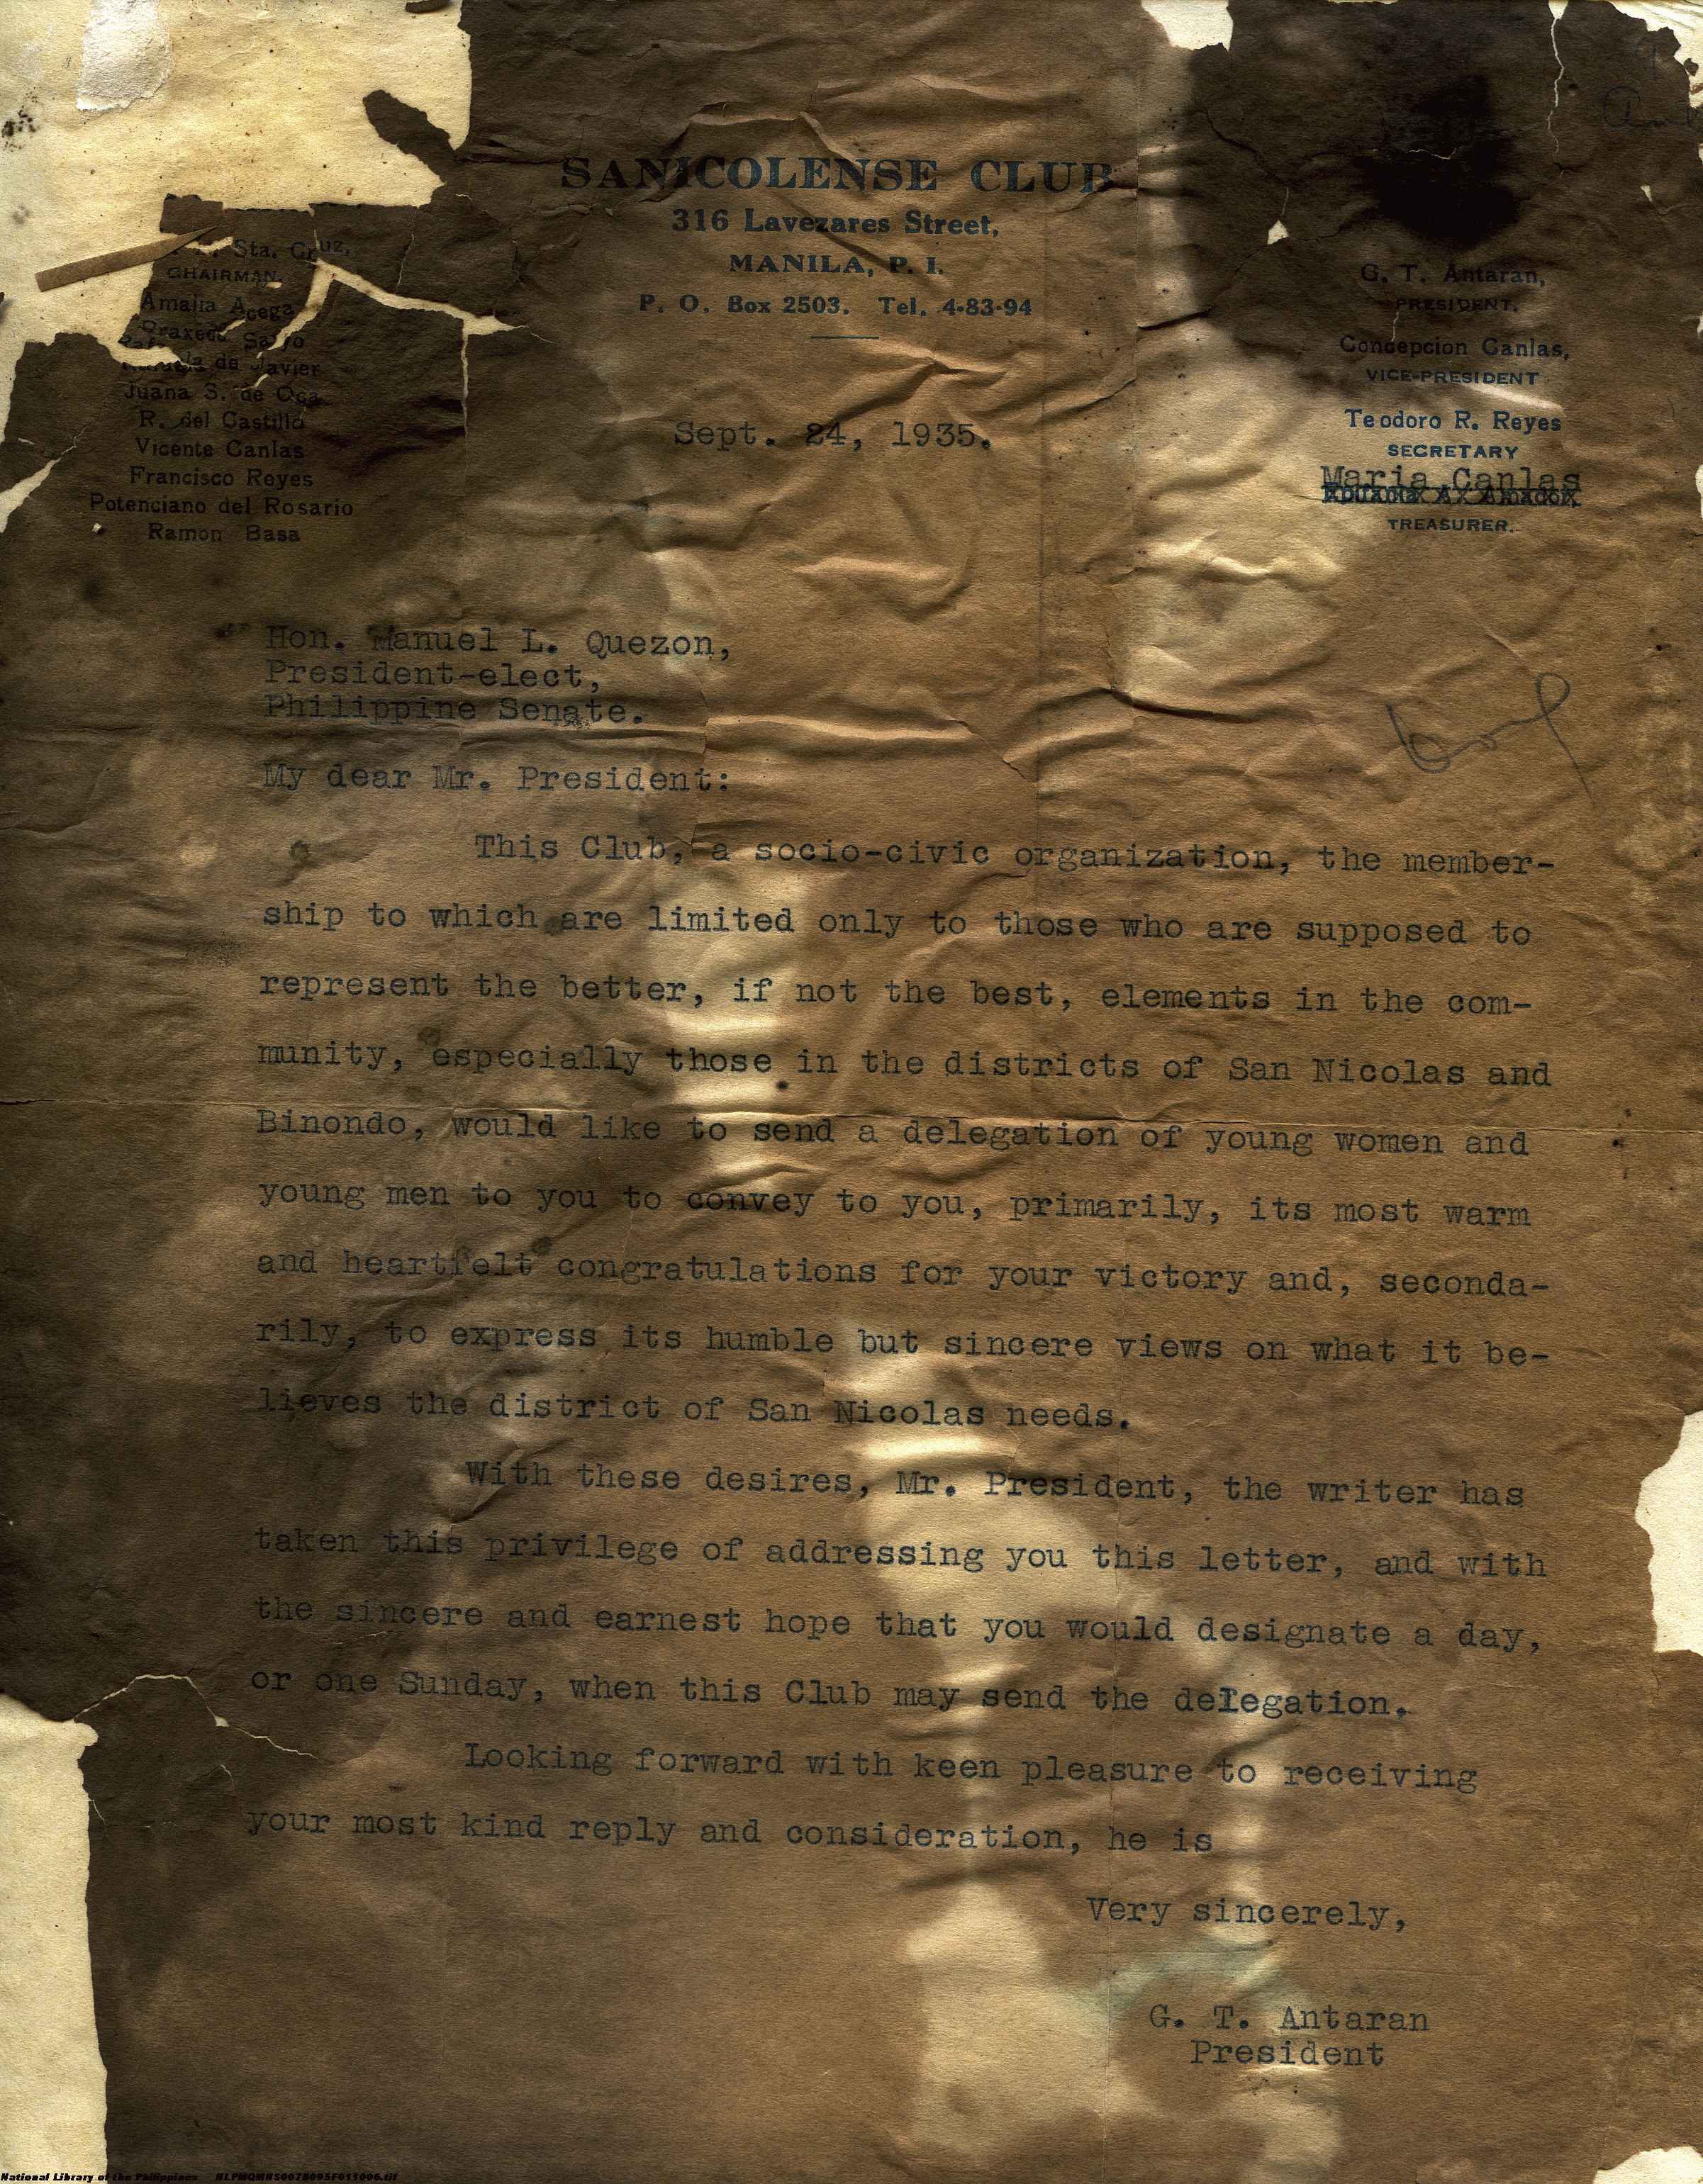 SANICOLENSE CLUB
316 Lavezares Street,
MANILA, P. I.
P. O. Box 2503. Tel. 4-83-94
Sta. Cruz,
CHAIRMAN.
Amalia Acega
Praxede Sayo
Rafaela de Javier
Juana S. de Oca
R. del Castillo
Vicente Canlas
Francisco Reyes
Potenciano del Rosario
Ramon Basa
G. T. Antaran,
PRESIDENT.
Concepcion Canlas,
VICE-PRESIDENT
Teodoro R. Reyes
SECRETARY
Maria Canlas
TREASURER.
Sept. 24, 1935.
Hon. Manuel L. Quezon,
President-elect,
Philippine Senate.
My dear Mr. President:
This Club, a socio-civic organization, the member-
ship to which are limited only to those who are supposed to
represent the better, if not the best, elements in the com-
munity, especially those in the districts of San Nicolas and
Binondo, would like to send a delegation of young women and
young men to you to convey to you, primarily, its most warm
and heartfelt congratulations for your victory and, seconda-
rily, to express its humble but sincere views on what it be-
lieves the district of San Nicolas needs.
With these desires, Mr. President, the writer has
taken this privilege of addressing you this letter, and with
the sincere and earnest hope that you would designate a day,
or one Sunday, when this Club may send the delegation.
Looking forward with keen pleasure to receiving
your most kind reply and consideration, he is
Very sincerely,
G. T. Antaran
President
National Library of the Philippines NLPMQMNS007B095F011006.tif